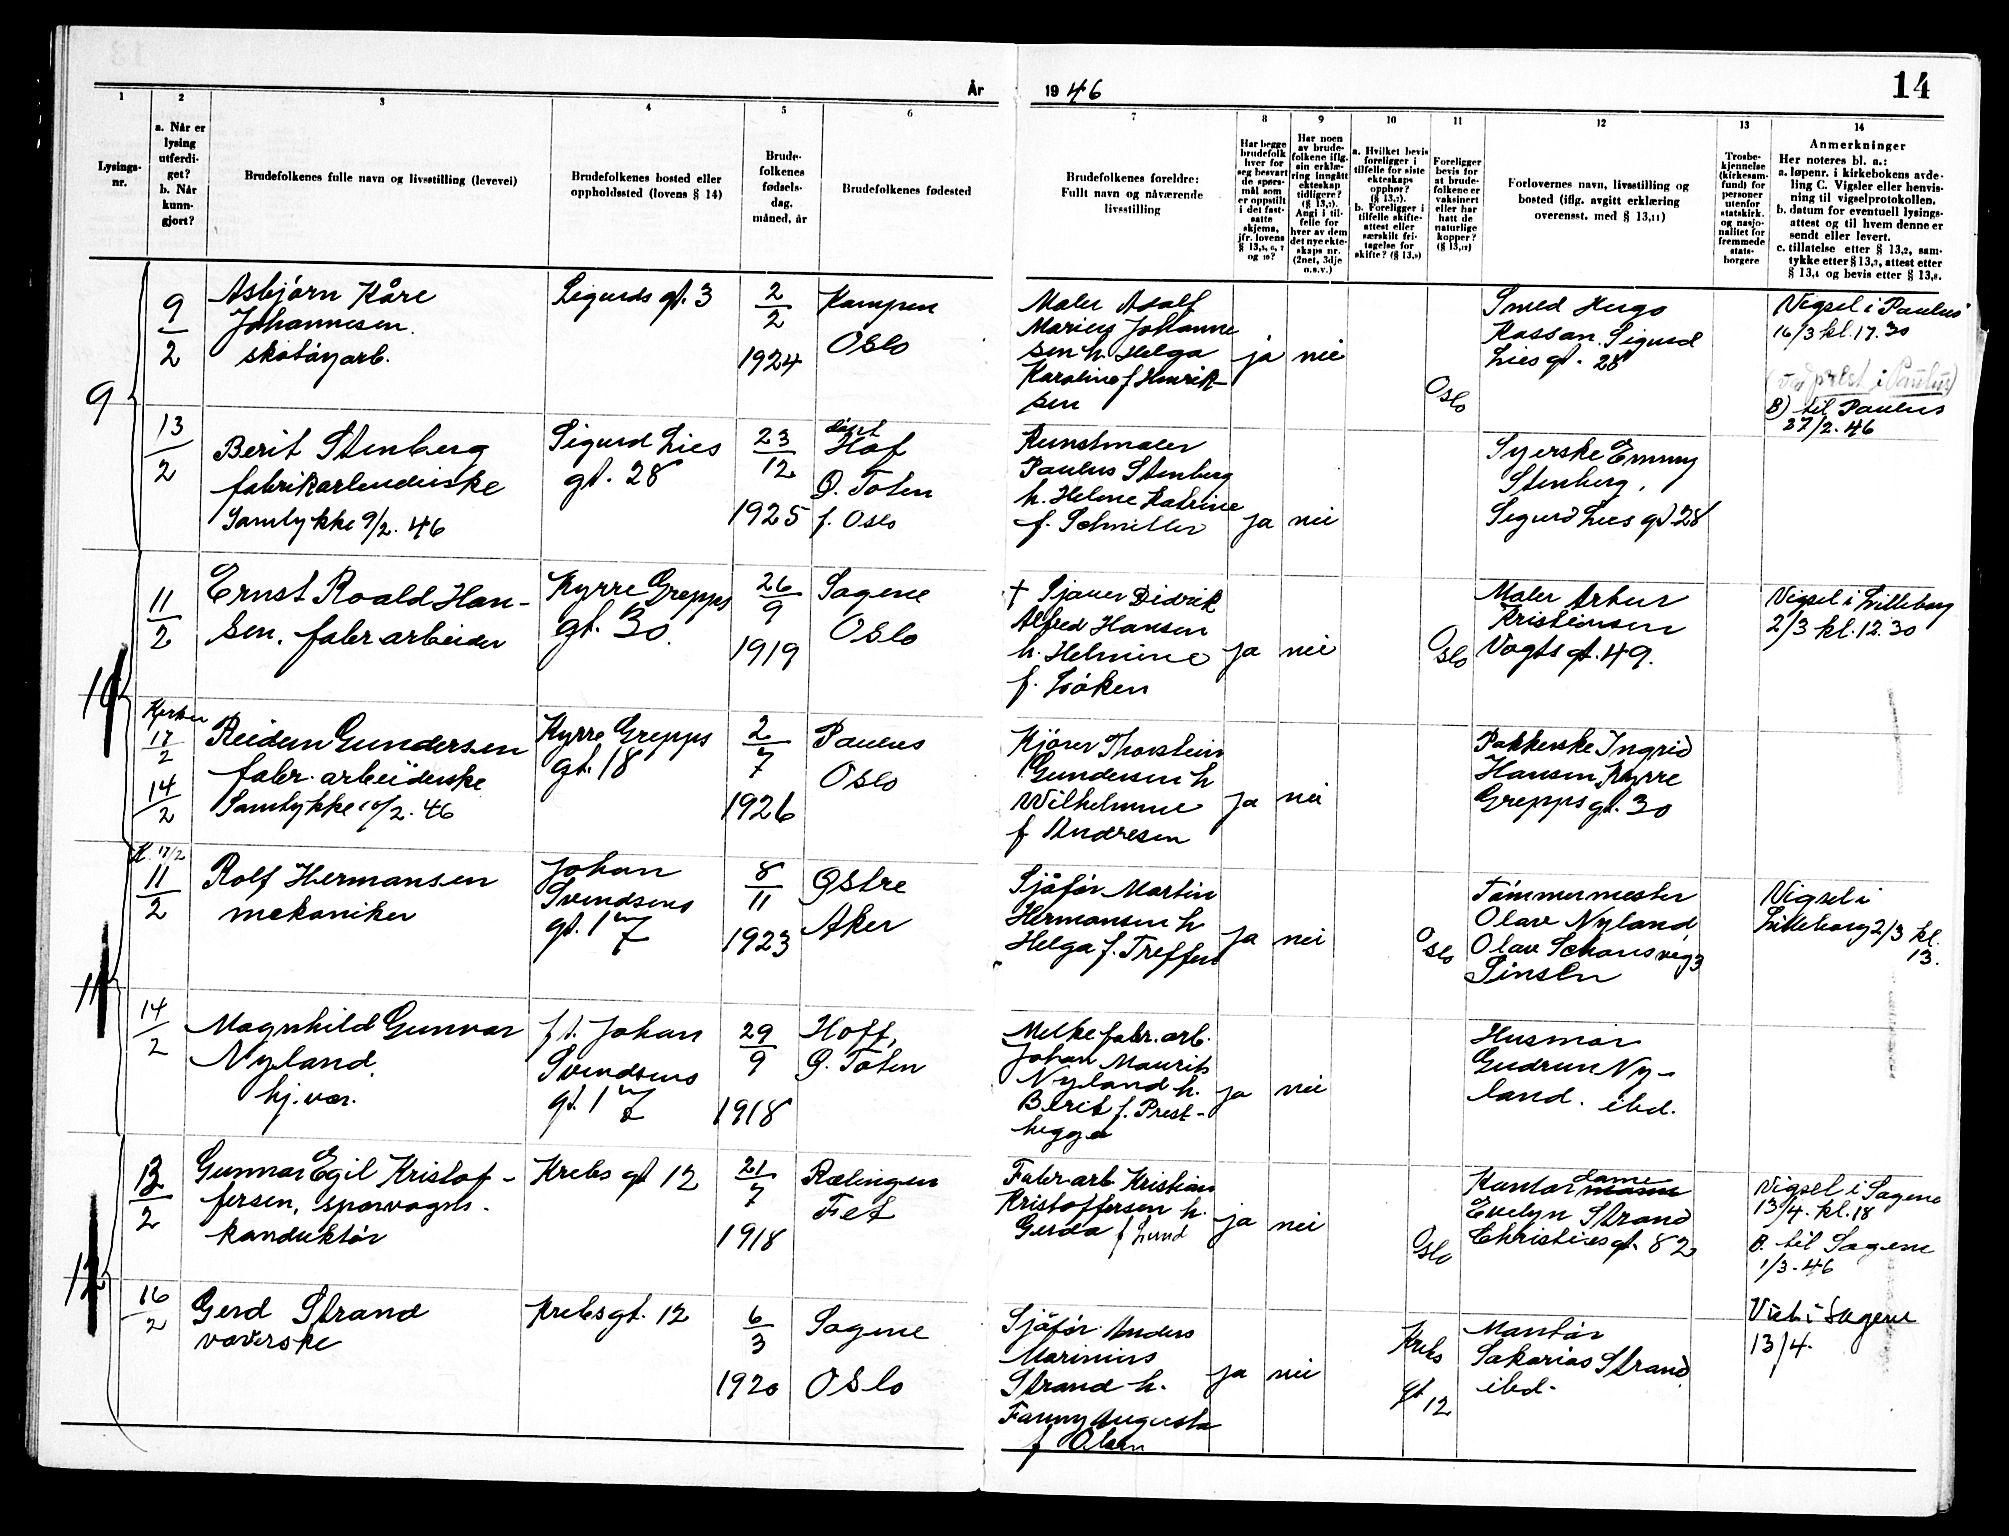 År 1946
14
1 2 3 4 5 6 7 8 9 10 11 12 13 14
Lysings-
nr.
a. Når er
lysing
utferdi-
get?
b. Når
kunn-
gjort?
Brudefolkenes fulle navn og livsstilling (levevei)
Brudefolkenes bosted eller
oppholdssted (lovens § 14)
Brude-
folkenes
fødsels-
dag,
måned, år
Brudefolkenes fødested
Brudefolkenes foreldre:
Fullt navn og nåværende
livsstilling
Har begge
brudefolk
hver for
seg besvart
de spørs-
mål som
er oppstilt
i det fast-
satte
skjema,
jfr. lovens
§ 13,5, 6, 7
og 10?
Har noen
av brude-
folkene iflg.
sin erklæ-
ring inngått
ekteskap
tidligere?
(§ 13,7).
Angi i til-
felle for
hver av dem
det nye ekte-
skaps nr.
(2net, 3dje
o.s.v.)
a. Hvilket bevis
foreligger i
tilfelle for siste
ekteskaps
opphør?
(§ 13,7).
b. Foreligger i
tilfelle skifte-
attest eller
særskilt fri-
tagelse for
skifte? (§ 13,9)
Foreligger
bevis for
at brude-
folkene er
vaksinert
eller har
hatt de
naturlige
kopper?
(§ 13,12)
Forlovernes navn, livsstilling og
bosted (iflg. avgitt erklæring
overensst. med § 13,11)
Trosbe-
kjennelse
(kirkesam-
fund) for
personer
utenfor
statskirk.
og nasjo-
nalitet for
fremmede
stats-
borgere
Anmerkninger
Her noteres bl. a.:
a. løpenr. i kirkebokens avde-
ling C. Vigsler eller henvis-
ning til vigselprotokollen.
b. datum for eventuell lysings-
attest og til hvem denne er
sendt eller levert.
c. tillatelse etter § 13,2, sam-
tykke etter § 13,3, attest etter
§ 13,4 og bevis etter § 13,8.
9
9/2
Asbjørn Kåre
Johannesen.
skotøyarb.
Sigurds gt. 3
2/2
1924
Kampen
Oslo
Maler Adolf
Marius Johanne
sen h. Helga
Karoline f Henrik-
sen
ja
nei
Oslo
Smed Hugo
Kassan. Sigurd
Lies gt. 28
Vigsel i Paulus
16/3 kl. 17.30
(ved prest i Paulus)
B) til Paulus
27/2.46
13/2
Berit Stenberg
fabrikarbeiderske
Samtykke 9/2.46
Sigurd Lies
gt. 28
23/12
1925
døpt
Hof
Ø. Toten
f. Oslo
Kunstmaler
Paulus Stenberg
h. Helene Katrine
f. Schmeller
ja
nei
Syerske Emmy
Stenberg,
Sigurd Lies gt 28
10
11/2
Ernst Roald Han-
sen, fabr arbeider
Kyrre Grepps
gt. 30.
26/9
1919
Sagene
Oslo
† Sjauer Didrik
Alfred Hansen
h. Helmine
f. Løken
ja
nei
Oslo
Maler Artur
Kristiansen
Vogts gt. 49.
Vigsel i Lilleborg
2/3 kl. 12.30
17/2
14/2
Reidun Gundersen
fabr. arbeiderske
Samtykke 10/2.46
Kyrre Grepps
gt. 18
2/7
1926
Paulus
Oslo
Kjører Thorstein
Gundersen h
Wilhelmine
f. Andresen
ja
nei
Pakkerske Ingrid
Hansen, Kyrre
Grepps gt. 30
11
K. 17/2
11/2
Rolf Hermansen
mekaniker
Johan
Svendsens
gt. 1 7
8/11
1923
Østre
Aker
Sjåfør Martin
Hermansen h
Helga f. Treffen
ja
nei
Oslo
Tømmermester
Olav Nyland
Olav Schous veg 3
Sinsen
Vigsel i
Lilleborg 2/3 kl.
13.
14/2
Magnhild Gunvor
Nyland.
hj.vær.
f t. Johan
Svendsens
gt. 1 7
29/9
1918
Hoff,
Ø. Toten
Melkefabr. arb.
Johan Maurits
Nyland h.
Berit f. Prest-
hegge
ja
nei
Husmor
Gudrun Ny-
land. ibd.
12
13/2
Gunnar Egil Kristof-
fersen, sporvogns-
konduktør
Krebs gt 12
21/7
1918
Rælingen
Fet
Fabr arb Kristian
Kristoffersen h.
Gerda f Lund
ja
nei
Oslo
Kontordame
Evelyn Strand
Christies gt. 82
Vigsel i Sagene
13/4. kl. 18
B. til Sagene
1/3-46
16/2
Gerd Strand
væverske
Krebs gt. 12
6/3
1920
Sagene
Oslo
Sjåfør Anders
Marinius
Strand h.
Fanny Augusta
f Olsen
ja
nei
Krebs
gt 12
Montør
Sakarias Strand
ibd.
Viet i Sagene
13/4.